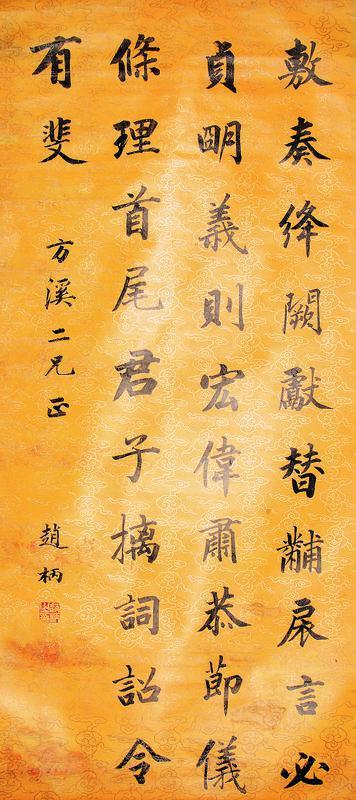 敷奏絳闕獻替黼扆言必
貞明義則宏偉肅恭節儀
條理首尾君子摛詞詔令
有斐
方溪二兄正
趙柄